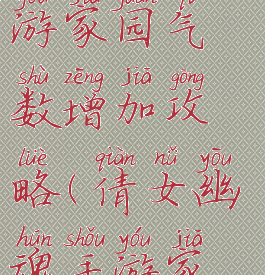 yóu jiā yuán qì
游家园气
shù zēng jiā gōng
数增加攻
lüè qiàn nǚ yōu
略(倩女幽
hún shǒu yóu jiā
魂手游家